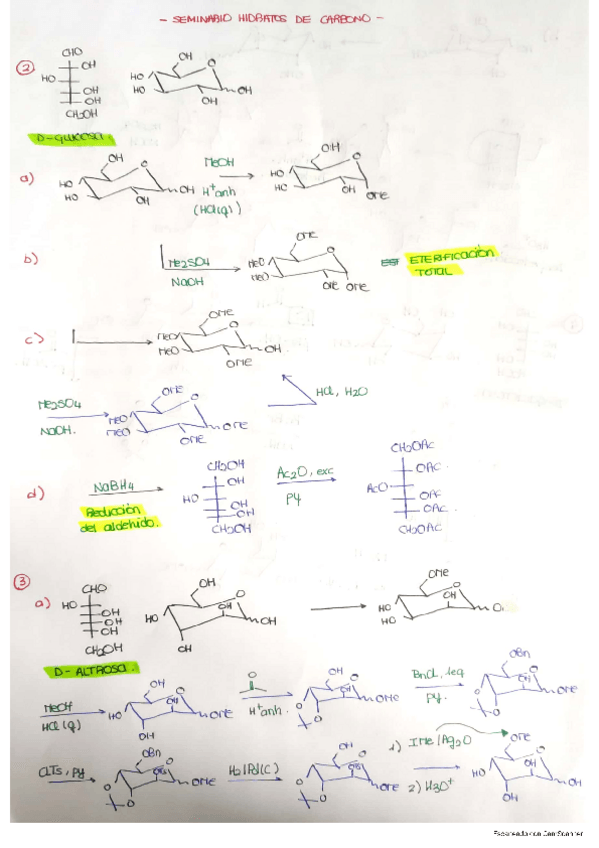 - SEMINARIO HIDRATOS DE CARBONO -
2
CHO
OH
HO
OH
OH
CH2OH
OH
O
HO
HO
OH
OH
D-GLUCOSA
a)
OH
O
HO
HO
OH
OH
MeOH
H+anh
(HCl(g))
OH
O
HO
HO
OH
OMe
b)
Me2SO4
NaOH
OMe
O
MeO
MeO
OMe OMe
ETERIFICACIÓN
TOTAL
c)
OMe
O
MeO
MeO
OH
OMe
Me2SO4
NaOH.
OMe
O
MeO
MeO
OMe
OMe
HCl, H2O
d)
NaBH4
Reducción
del aldehido.
CH2OH
OH
HO
OH
OH
CH2OH
Ac2O, exc
Py
CH2OAc
OAc
AcO
OAc
OAc
CH2OAc
3
a)
CHO
HO
OH
OH
OH
CH2OH
OH
O
HO
OH
OH
OH
OMe
O
HO
HO
OH
O
D-ALTROSA.
MeOH
HCl(g)
OH
O
HO
OH
OMe
OH
O
H+anh.
OH
O
OH
OMe
O
O
BnCl, 1eq
Py.
OBn
O
OH
OMe
O
O
ClTs, Py
OBn
O
OMe
O
O
H2|Pd(C)
OH
O
OMe
O
O
1) IMe/Ag2O
2) H3O+
OMe
O
HO
OH
OMe
Escaneado con CamScanner